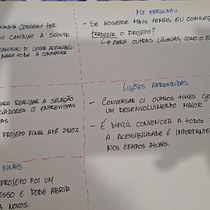 CONSEGUI POR
O CAMINHO A SEGUIR
LEVAR ACESSIBILI-
PARA TODA A COMPANHIA
ME PERGUNTO
- SE HOUVESSE MAIS TEMPO, EU CONSEG
TRADUZIR O PROJETO?
↳ PARA OUTRAS LÍNGUAS, COMO O E
PARA REALIZAR A SELEÇÃO
E ENTREVISTAS
PROJETO FINAL ATÉ
LIÇÕES APRENDIDAS
- CONVERSAR C/ OUTROS TIMES GE
UM DESENVOLVIMENTO MAIOR
- É DIFÍCIL CONVENCER A TODOS
A ACESSIBILIDADE É IMPORTANTE
NOS ... ATUAIS.
FINAIS
PROJETO FOI UM
SSO E PODE ABRIR
A NOVOS.